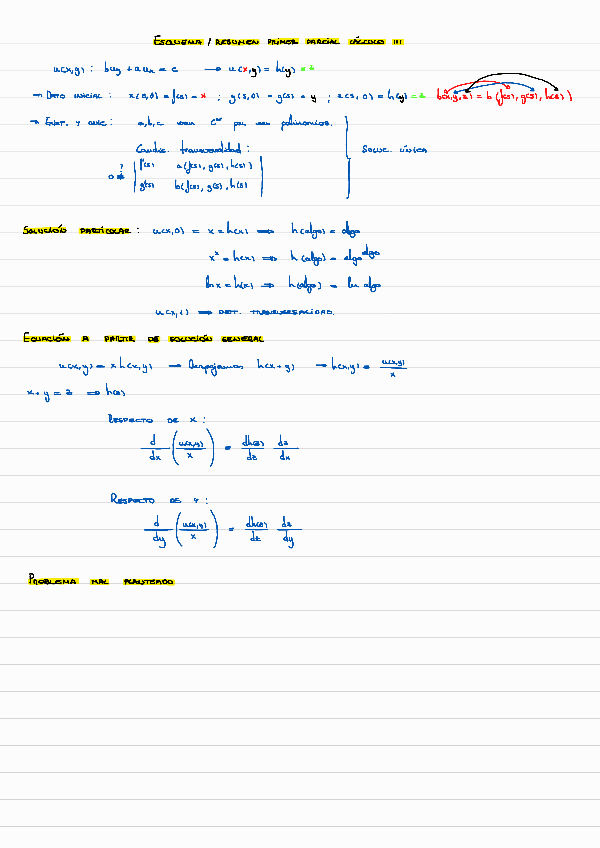 ESQUEMA / RESUMEN PRIMER PARCIAL CÁLCULO III
u(x,y) : b u_y + a u_x = c → u(x,y) = h(y) = z
→ DATO INICIAL : x(s,0) = f(s) = x ; y(s,0) = g(s) = y ; z(s,0) = h(y) = z b(x,y,z) = b (f(s), g(s), h(s))
→ EXIST. Y UNIC : a,b,c sean C^∞ por ser polinomios.
Condic. transversalidad : SOLUC. ÚNICA
0 ≠? | f'(s) a(f(s), g(s), h(s)) |
| g'(s) b(f(s), g(s), h(s)) |
SOLUCIÓN PARTICULAR : u(x,0) = x = h(x) ⟹ h(algo) = algo
x^x = h(x) ⟹ h(algo) = algo^algo
ln x = h(x) ⟹ h(algo) = ln algo
u(x,1) ⟹ DET. TRANSVERSALIDAD.
ECUACIÓN A PARTIR DE SOLUCIÓN GENERAL
u(x,y) = x h(x,y) → Despejamos h(x+y) → h(x,y) = u(x,y)/x
x + y = z ⟹ h(z)
RESPECTO DE X :
d/dx (u(x,y)/x) = dh(z)/dz dz/dx
RESPECTO DE Y :
d/dy (u(x,y)/x) = dh(z)/dz dz/dy
PROBLEMA MAL PLANTEADO